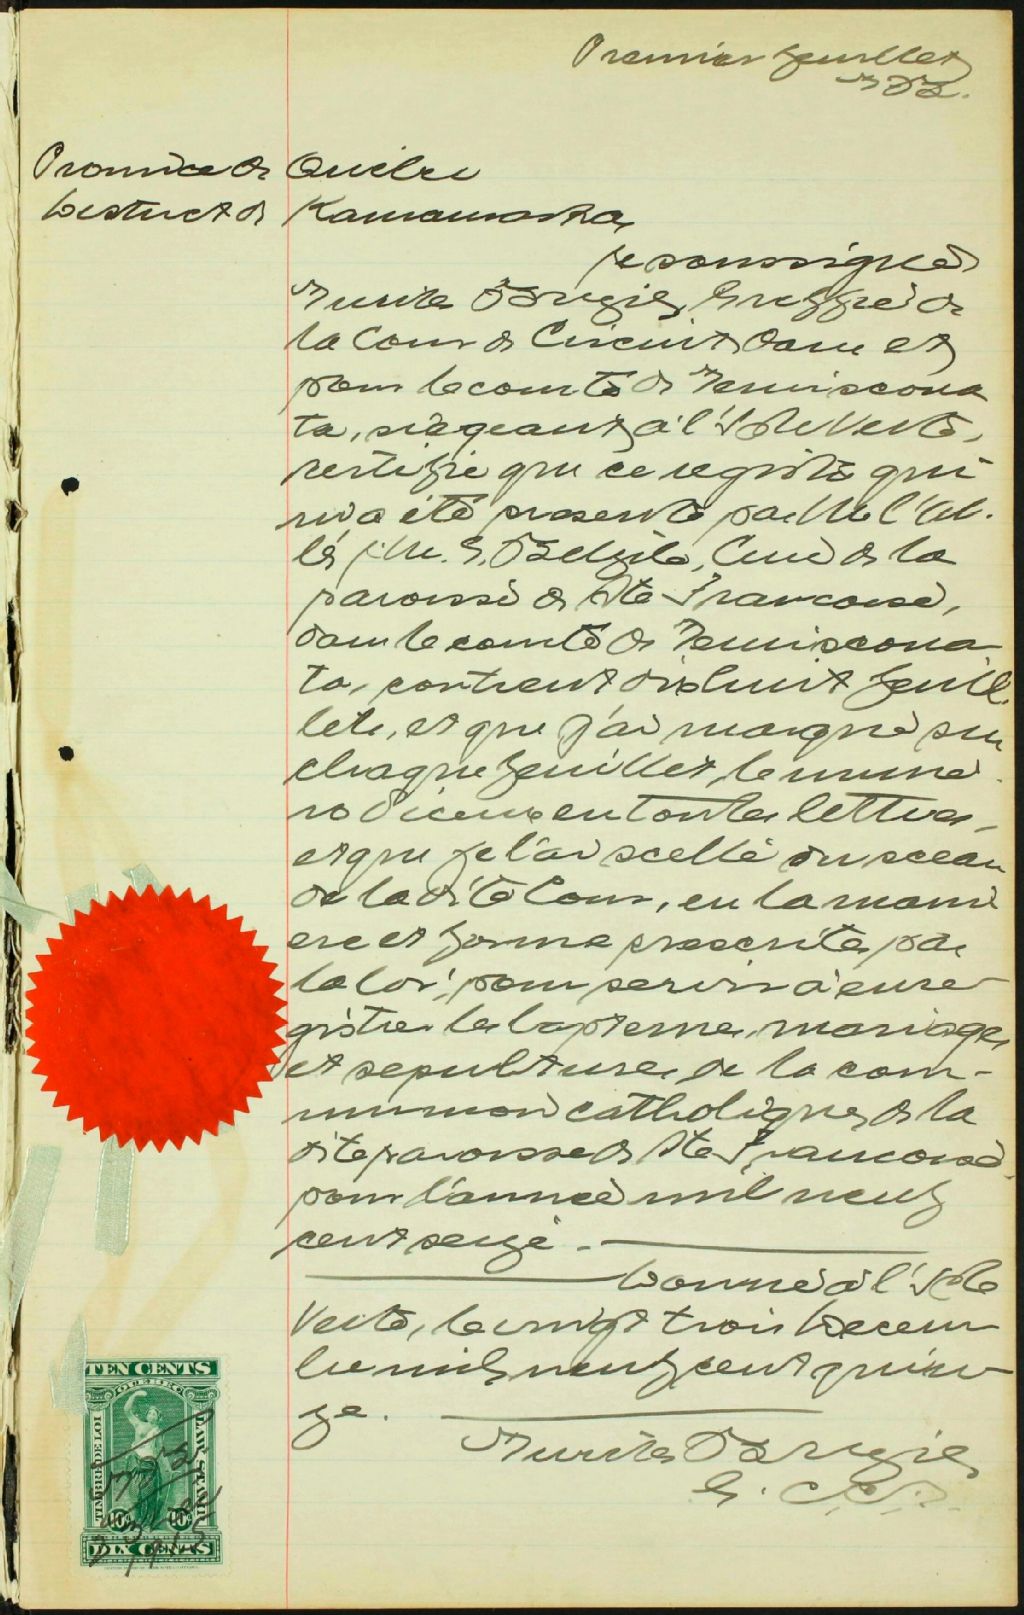 Premier feuillet
Province de Québec
District de Kamouraska
Je soussigné
Greffier de
la Cour de Circuit dans et
pour le comté de Témiscoua
ta, siégeant à l'Isle Verte,
certifie que ce registre qui
m'a été présenté par M. l'Ab-
bé J. M. S. Belzile, Curé de la
paroisse de Ste Françoise,
dans le comté de Témiscoua
ta, contient dixhuit feuil
lets, et que j'ai marqué sur
chaque feuillet le numé
ro d'icelui en toutes lettres,
et que je l'ai scellé du sceau
de la dite Cour, en la mani
ère et forme prescrites par
la loi, pour servir à enre
gistrer les baptêmes, mariages
et sépultures de la com-
munion catholique de la
dite paroisse de Ste Françoise
pour l'année mil neuf
cent seize.
Donné à l'Isle
Verte, le vingt trois Décem
bre mil neuf cent quin
ze.
G. C. C.
TEN CENTS
QUEBEC
TIMBRE DE LOI
LAW STAMP
10c 10c
DIX CENTS